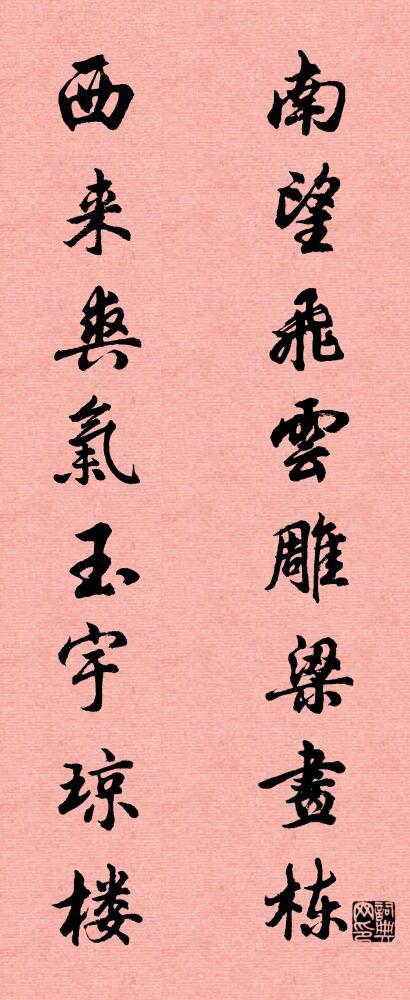 南望飛雲雕梁畫栋
西来爽氣玉宇琼楼
詞典网印